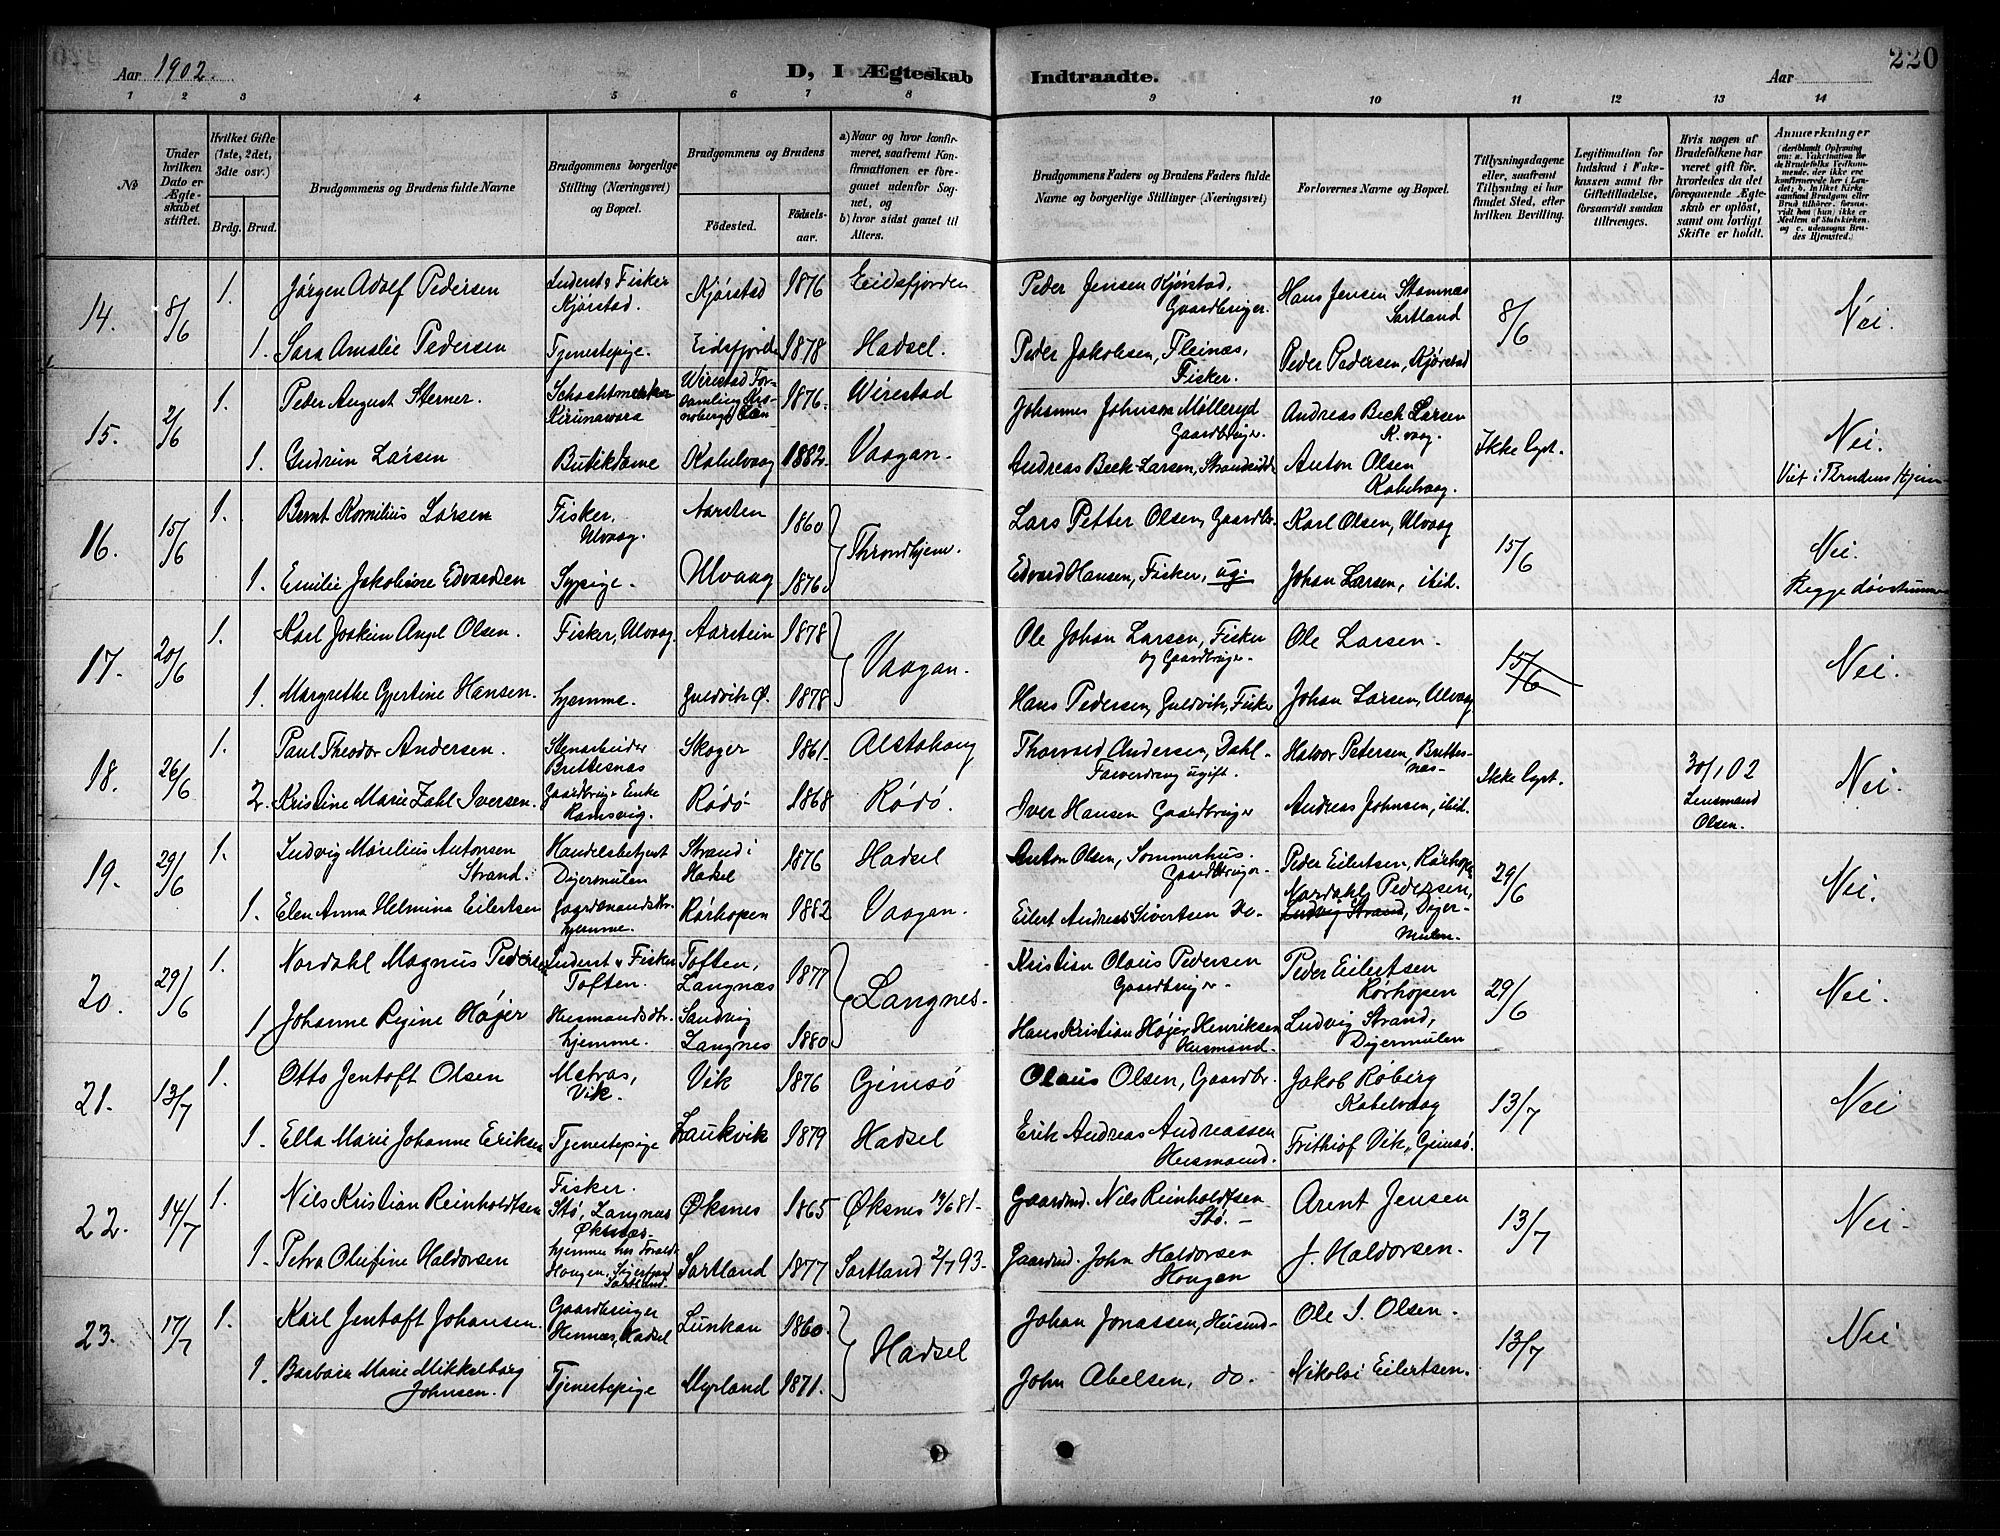 Aar 1902.
D, I Ægteskab Indtraadte.
Aar
220
1 2 3 4 5 6 7 8 9 10 11 12 13 14
No
Under hvilken Dato er Ægteskabet stiftet.
Hvilket Gifte (1ste, 2det, 3die osv.)
Brdg. Brud.
Brudgommens og Brudens fulde Navne
Brudgommens borgerlige Stilling (Næringsvei) og Bopæl.
Brudgommens og Brudens
Födested. Födselsaar.
a) Naar og hvor konfirmeret, saafremt Konfirmationen er foregaaet udenfor Sognet, og
b) hvor sidst gaaet til Alters.
Brudgommens Faders og Brudens Faders fulde Navne og borgerlige Stillinger (Næringsvei)
Forlovernes Navne og Bopæl.
Tillysningsdagene eller, saafremt Tillysning ei har fundet Sted, efter hvilken Bevilling.
Legitimation for Indskud i Enkekassen samt for Giftetilladelse, forsaavidt saadan tiltrænges.
Hvis nogen af Brudefolkene har været gift, hvorledes da det foregaaende Ægteskab er oplöst, samt om lovligt Skifte er holdt.
Anmærkninger
14. 8/6 1. Jørgen Adolf Pedersen Inderst & Fisker Kjørstad. Kjørstad 1876 Eidsfjorden Peder Jensen Kjørstad, Gaardbruger. Hans Jensen Stamnæs Sortland 8/6 Nei.
1. Sara Amalie Pedersen Tjenestepige. Eidsfjorden 1878 Hadsel. Peder Jakobsen, Fleinæs, Fisker. Peder Pedersen, Kjørstad
15. 2/6 1. Peder August Sterner. Schachtmester Kirunavara Wirestad 1876. Wirestad Johannes Johnson Mølleryd Gaardbruger. Andreas Beck Larsen K.vaag. Ikke lyst. Nei.
1. Gudrun Larsen Butikdame Kabelvaag 1882. Vaagan. Andreas Beck-Larsen, Strandsidder Anton Olsen Kabelvaag. Viet i Brudens Hjem
16. 15/6 1. Bernt Kornilius Larsen Fisker, Ulvaag. Aarsten 1860 Throndhjem. Lars Petter Olsen, Gaardbr. Karl Olsen, Ulvaag 15/6 Nei.
1. Emilie Jakobine Edvardsen Sypige. Ulvaag 1876. Edvard Hansen, Fisker, ug. Johan Larsen, ibid. Begge døvstumme
17. 20/6 1. Karl Joakim Angel Olsen. Fisker, Ulvaag. Aarstein 1878 Vaagan. Ole Johan Larsen, Fisker og Gaardbruger. Ole Larsen. 15/6 Nei.
1. Margrethe Gjertine Hansen. hjemme. Guldvik Ø. 1878 Hans Pedersen, Guldvik, Fisker Johan Larsen, Ulvaag
18. 26/6 1. Paul Theodor Andersen. Stenarbeider Brettesnæs Skoger 1861. Alstahaug Thorvald Andersen, Dahl. Farverdreng ugift. Halvor Petersen, Brettesnæs. Ikke lyst. 30/1 02 Lensmand Olsen. Nei.
2. Kristine Marie Zahl Iversen. Gaardbruger Enke Ramsvig. Rödö 1868 Rödö. Iver Hansen Gaardbruger Andreas Johnsen, ibid.
19. 29/6 1. Ludvig Marelius Antonsen Strand. Handelsbetjent Digermulen Strand i Hadsel 1876 Hadsel Anton Olsen, Sommerhus. Gaardbruger. Peder Eilertsen, Rørhopen 29/6 Nei.
1. Elen Anna Helmina Eilertsen hjemme. Rørhopen 1882 Vaagan. Eilert Andreas Sivertsen Do. Nordahl Pedersen, Ludvig Strand, Digermulen.
20. 29/6 1. Nordahl Magnus Pedersen Inderst & Fisker Toften. Toften, Langnæs 1877 Langnes. Kristian Olaus Pedersen Gaardbruger. Peder Eilertsen Rørhopen 29/6 Nei.
1 Johanne Regine Højer Husmandsdtr. hjemme. Sandvig Langnes 1880 Hans Kristian Højer Henriksen Husmand. Ludvig Strand, Digermulen
21. 13/7 1. Otto Jentoft Olsen Matros, Vik. Vik 1876 Gimsö Olaus Olsen, Gaardbr. Jakob Röberg Kabelvaag 13/7 Nei
1. Ella Marie Johanne Eriksen Tjenestepige Laukvik 1879 Hadsel Erik Andreas Andreassen Husmand. Frithiof Vik, Gimsö.
22. 14/7 1. Nils Kristian Reinholdtsen Fisker. Stø, Langnæs Øksnæs Øksnes 1865 Øksnes 19/6 81. Gaardmd. Nils Reinholdtsen Stø. Arent Jensen 13/7 Nei.
1. Petra Olufine Haldorsen hjemme hos Foraldr. Haugen, Sortland. Sortland 1877 Sortland 2/7 93. Gaardmd. John Haldorsen Haugen J. Haldorsen.
23. 17/7 1. Karl Jentoft Johansen. Gaardbruger Hennæs, Hadsel Lunkan 1860. Hadsel Johan Jonassen, Husmd. Ole S. Olsen. 13/7 Nei
1. Barbara Marie Mikkelborg Johnsen. Tjenestepige Myrland 1871. John Abelsen, do. Nikolai Eilertsen.